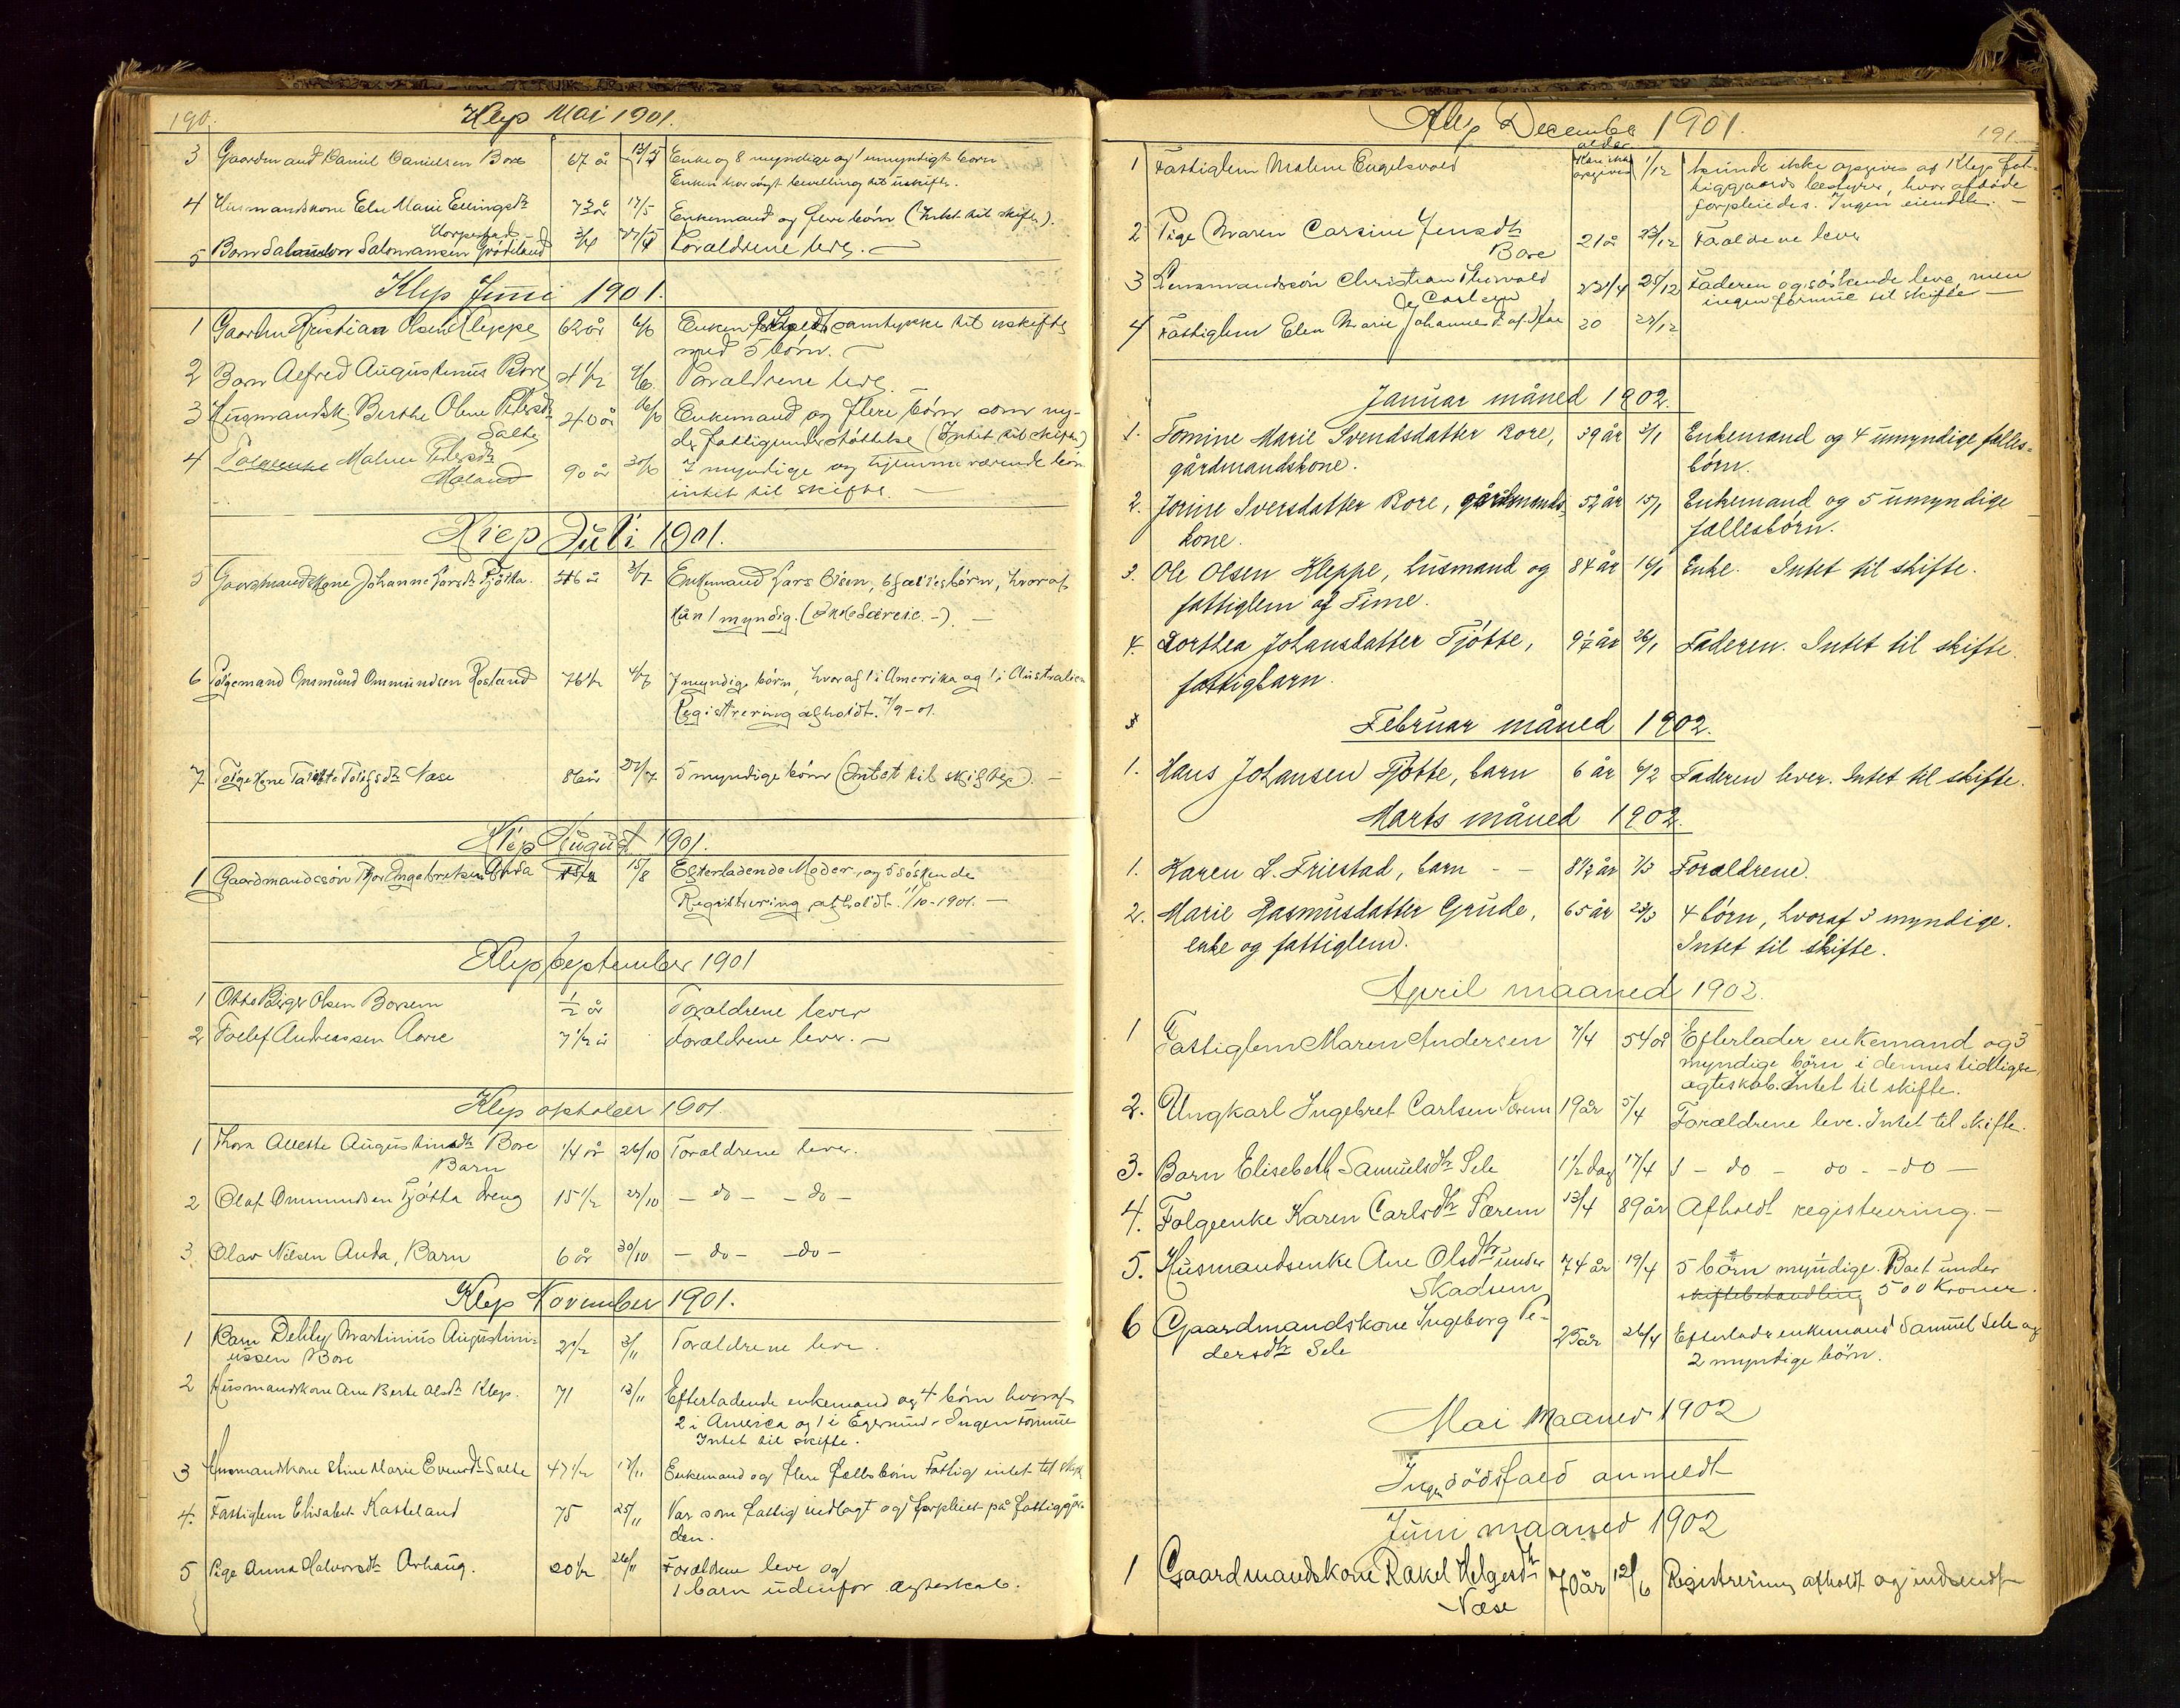 190.
Klep Mai 1901.
3 Gaardmand Daniel Danielsen Bore 67 år 13/5 Enke og 8 myndige og 1 umyndigt barn
Enken har søgt bevilling til uskifte.
4 Husmandskone Else Marie Ellingsdt 73 år 17/5 Enkemand og flere börn (Intet til skifte).
5 Barn Salomon Salomonsen Grödeland 3/4 27/5 Forældrene leve. —
Klep Juni 1901.
1 Gaardm Kristian Olsen Kleppe 62 år 6/6 Enken samtykke til uskifte
med 5 börn. —
2 Barn Alfred Augustinus Bore 4 1/2 9/6 Forældrene leve. —
3 Husmandsk. Berthe Oline Pedersdt 40 år 16/6 Enkemand og flere börn som ny-
Salte der fattigunderstöttelse (Intet til skifte)
4 Folgeenke Malene Pedersdt 90 år 30/6 7 myndige og hjemmeværende börn
Moland intet til skifte. —
Klep Juli 1901.
5 Gaardmandskone Johanne Larsdt Tjötta. 46 å 3/7 Enkemand Lars Olsen, 6 fællesbörn, hvoraf
kun 1 myndig. —
6 Folgemand Ommund Ommundsen Rosland 76 1/2 4/7 7 myndige börn, hvoraf 1 i Amerika og 1 i Australien
Registrering afholdt. 7/9-01.
7 Folgekone Folgesdt Næse 86 år 27/7 5 myndige börn (Intet til skifte). —
Klep August 1901.
1 Gaardmandssön Thor Ingebretsen Anda 15/8 Efterladende Moder, og 5 söskende
Registrering afholdt. 11/10-1901. —
Klep September 1901
1 Otto Birger Olsen Borsem 1/2 år Forældrene lever
2 Tollef Andreassen Aarre 7 1/2 å Forældrene lever. —
Klep oktober 1901.
1 Thora Alette Augustinsdt Bore 1/4 år 26/10 Forældrene lever.
Barn
2 Olaf Ommundsen Tjötta dreng 15 1/2 27/10 — do — — do —
3 Olav Nilsen Anda, Barn 6 år 30/10 — do — — do —
Klep November 1901.
1 Barn Martinius Augustini- 2 1/2 3/11 Forældrene leve.
ussen Bore
2 Husmandskone Ane Berte Olsdt Klep. 71 13/11 Efterladende enkemand og 4 börn hvoraf
2 i America og 1 i Egersund. Ingen formue
Intet til skifte.
3 Husmandskone Stine Marie Evensdt Salte 47 1/2 17/11 Enkemand og flere fællsbörn Fattig intet til skift
4. Fattiglem Elisabet Kasteland 75 25/11 Var som fattig indlagt og forpleiet på fattiggår-
den.
5 Pige Anna Halvorsdt Orhaug. 20 1/2 26/11 Forældrene leve og
1 barn udenfor ægteskab.
Klep December 1901.
191.
1 Fattiglem Malene Engelsvold alder kan ikke opgives 1/12 kunde ikke opgives af Klep fat-
tiggaards bestyrer, hvor afdöde
forpleiedes. Ingen eiendele. —
2 Pige Maren Carsine Jensdt 21 år 23/12 Forældrene lever
Bore
3 Lensmandssön Christian Thorvald 22 1/4 25/12 Faderen og söskende leve, men
ingen formue til skifte —
4 Fattiglem Elen Marie Johannesdt 30 27/12
Januar måned 1902.
1. Tomine Marie Svendsdatter Bore, 39 år 3/1 Enkemand og 4 umyndige fælles-
gårdmandskone. börn.
2. Jorine Iversdatter Bore, gårdmands- 52 år 15/1 Enkemand og 5 umyndige
kone. fællesbörn.
3. Ole Olsen Kleppe, husmand og 84 år 16/1 Enke. Intet til skifte.
fattiglem af Time.
4. Dorthea Johansdatter Tjötte, 9 1/2 år 26/1 Faderen. Intet til skifte.
fattigbarn.
Februar måned 1902.
1. Hans Johansen Tjötte, barn 6 år 6/2 Faderen lever. Intet til skifte.
Marts måned 1902.
1. Karen L. Friestad, barn - - 8 1/2 år 7/3 Forældrene.
2. Marie Rasmusdatter Grude, 65 år 23/3 4 börn, hvoraf 3 myndige.
enke og fattiglem. Intet til skifte.
April maaned 1902.
1 Fattiglem Maren Andersen 7/4 54 år Efterlader enkemand og 3
myndige börn i dennes tidligre
ægteskab. Intet til skifte.
2. Ungkarl Ingebret Carlsen Særem 19 år 5/4 Forældrene leve. Intet til skifte.
3. Barn Elisebeth Samuelsdt Sele 1 1/2 dag 17/4 — do — do — do —
4. Folgeenke Karen Carlsdt Særem 13/4 89 år Afholdt registrering. —
5. Husmandsenke Ane Olsdt under 74 år 19/4 5 börn myndige. Boet under
Skadsem skiftebehandling 500 Kroner.
6 Gaardmandskone Ingeborg Pe- 25 år 26/4 Efterlader enkemand Samuel Sele og
dersdt Sele 2 myndige börn.
Mai Maaned 1902
Ingen dödsfald anmeldt
Juni maaned 1902
1 Gaardmandskone Rakel Helgesdt 70 år 12/6 Registrering afholdt og indsendt
Næse